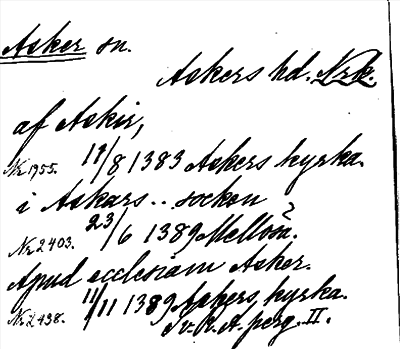 Asker sn.
Askers hd. Nrk.
af Askir,
Nr 1955. 11/8 1383 Askers kyrka.
i Askars.. socken
Nr 2403. 23/6 1389 Mellösa. ?
Apud ecclesiam Asker.
Nr 2438. 11/11 1389 Askers, kyrka.
Sv. R. A. perg. II.